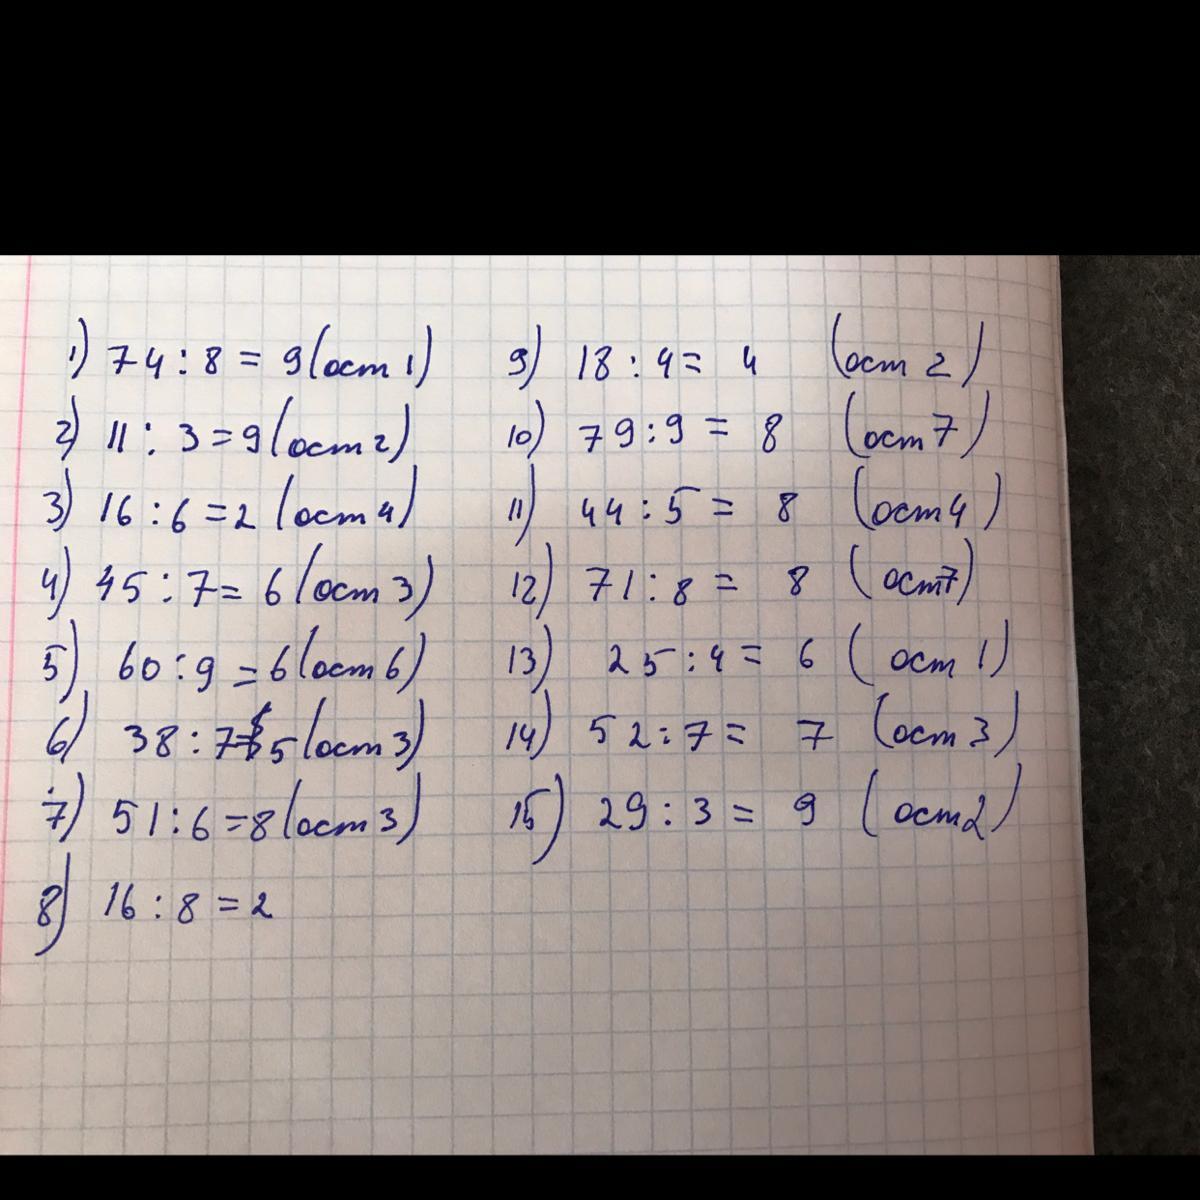 1) 74 : 8 = 9 (ост 1)
2) 11 : 3 = 9 (ост 2)
3) 16 : 6 = 2 (ост 4)
4) 45 : 7 = 6 (ост 3)
5) 60 : 9 = 6 (ост 6)
6) 38 : 7 = 5 (ост 3)
7) 51 : 6 = 8 (ост 3)
8) 16 : 8 = 2
9) 18 : 4 = 4 (ост 2)
10) 79 : 9 = 8 (ост 7)
11) 44 : 5 = 8 (ост 4)
12) 71 : 8 = 8 (ост 7)
13) 25 : 4 = 6 (ост 1)
14) 52 : 7 = 7 (ост 3)
15) 29 : 3 = 9 (ост 2)